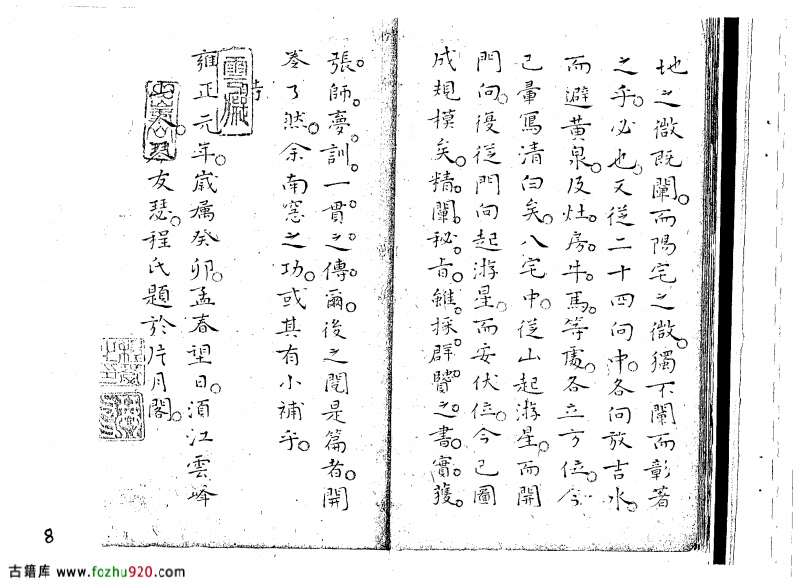 地之微既闡。而陽宅之微。獨不闡而彰著
之乎。必也。又從二十四向中。各向放吉水。
而避黃泉。及灶。房。牛。馬。等處。各立方位。今
已彙寫清白矣。八宅中。從山起游星。而開
門向。復從門向起游星。而安伏位。今已圖
成規模矣。精闡。秘旨。雖採群賢之。書。實獲。
張。師。夢。訓。一貫。之。傳。爾。後之閱是篇者。開
卷了然。余南窓之功。或其有小補乎。
時
雍正元年。歲属癸卯。孟春望日。湏江雲峰
友瑟。程氏題於片月閣。
8
古籍库 www.fozhu920.com